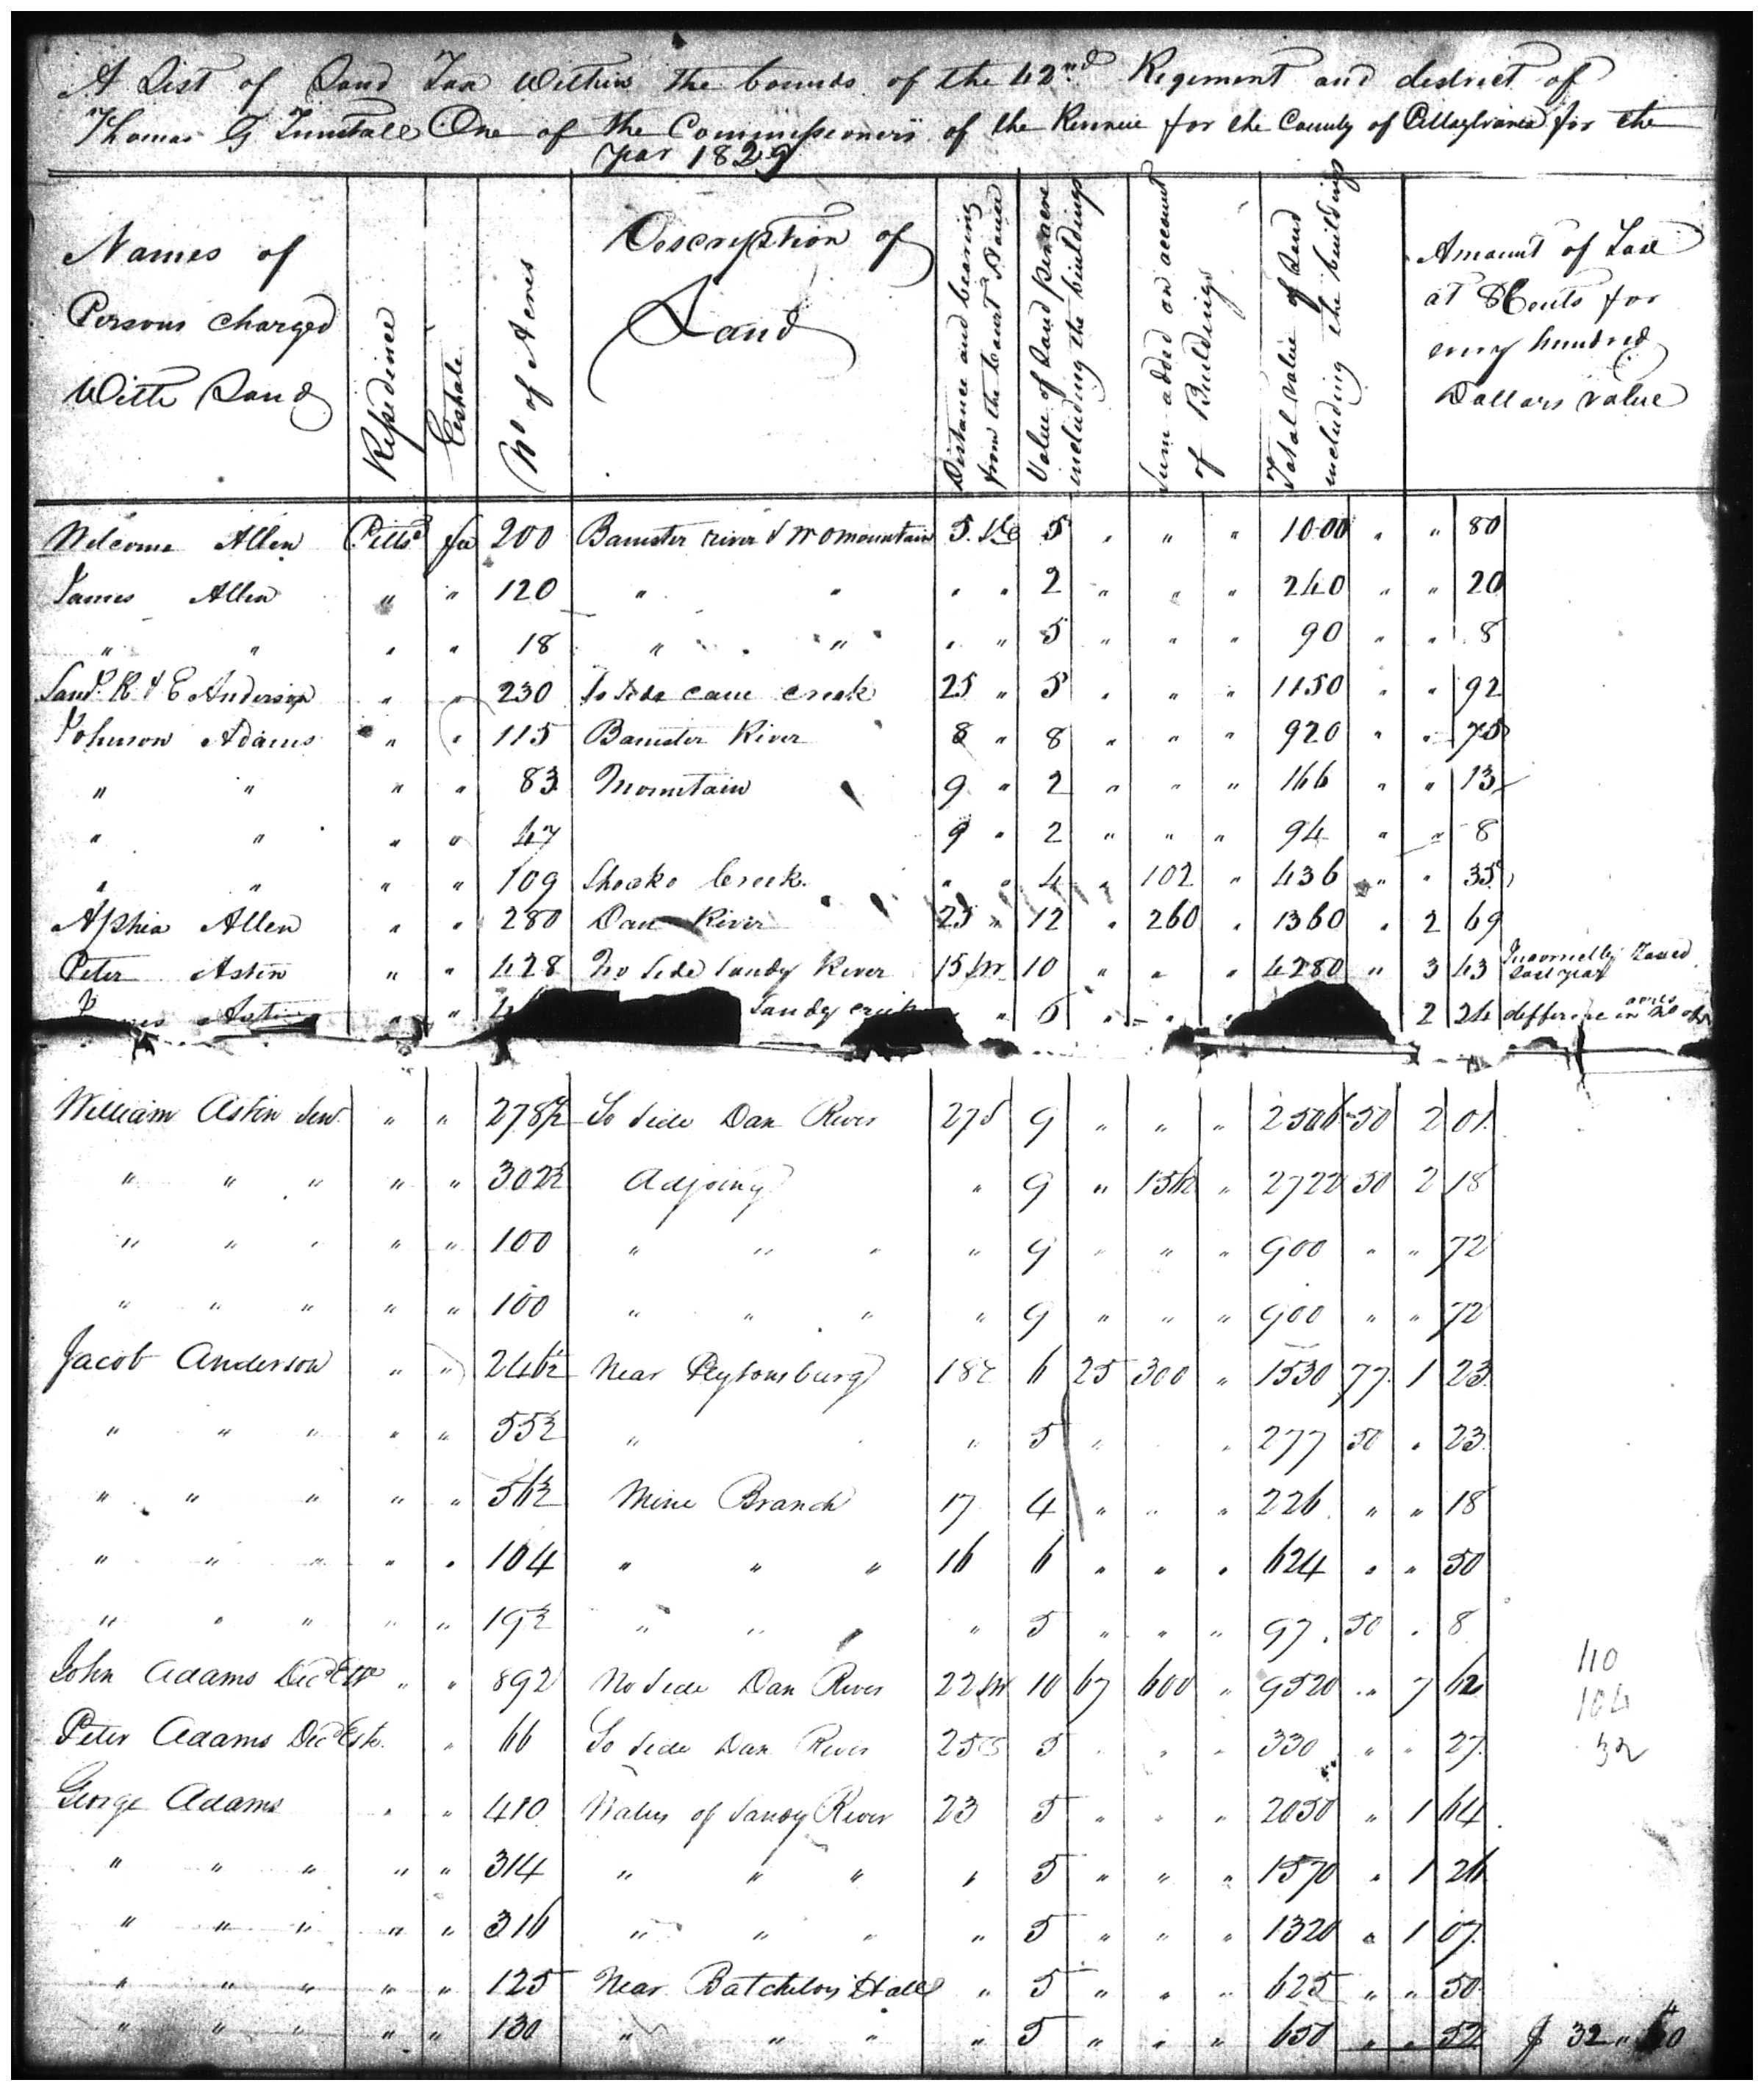 A List of Land Tax Within the bounds of the 42nd Regiment and district of
Thomas G Tunstall One of the Commissioners of the Revenue for the County of Pittsylvania for the
year 1829
Names of Persons charged With Land
Residence
Estate
No of Acres
Description of Land
Distance and bearing from the Court House
Value of Land per acre including the buildings
Sum added on account of Buildings
Total value of Land including the buildings
Amount of Tax at 8 Cents for every hundred Dollars value
Welcome Allen Pittsa fee 200 Banister river & W O mountain 5 5 " " " 1000 " " 80
James Allen " " 120 " " " " 2 " " " 240 " " 20
" " " " 18 " " " " 5 " " " 90 " " 8
R & E Anderson " " 230 So Side cane creek 25 " 5 " " " 1150 " " 92
Johnson Adams " " 115 Banister River 8 " 8 " " " 920 " " 75
" " " " 83 Mountain 9 " 2 " " " 166 " " 13
" " " " 47 9 " 2 " " " 94 " " 8
" " " " 109 Shocko Creek " " 4 " 102 " 436 " " 35
Aphia Allen " " 280 Dan River 25 " 12 " 260 " 1360 " 2 69
Peter Astin " " 428 No Side Sandy River 15 W 10 " " " 4280 " 3 43 Incorrectly Taxed last year
Astin " " Sandy creek " " 6 " " " 2 24 difference in acres
William Astin Senr " " 278½ So Side Dan River 27 S 9 " " " 2506 50 2 01
" " " " " 302½ Adjoing " 9 " " 2722 50 2 18
" " " " " 100 " " " " 9 " " " 900 " " 72
" " " " " 100 " " " " 9 " " " 900 " " 72
Jacob Anderson " " 246½ Near Peytonsburg 18 E 6 25 300 " 1530 77 1 23
" " " " " 55½ " " 5 " " 277 50 " 23
" " " " " 56½ Mine Branch 17 4 " " " 226 " " 18
" " " " " 104 " " " 16 6 " " " 624 " " 50
" " " " " 19½ " " " " 5 " " " 97 50 " 8
John Adams Decd Este " " 892 No Side Dan River 22 W 10 67 600 " 9520 " 7 62
Peter Adams Decd Este " 66 So Side Dan River 25 S 5 " " " 330 " " 27
George Adams " " 410 Waters of Sandy River 23 5 " " " 2050 " 1 64
" " " " " 314 " " " " 5 " " " 1570 " 1 26
" " " " " 316 " " " " 5 " " " 1320 " 1 07
" " " " " 125 Near Batchelors Hall " 5 " " " 625 " " 50
" " " " " 130 " " " " 5 " " " 650 " " 52 $ 32
110
104
32